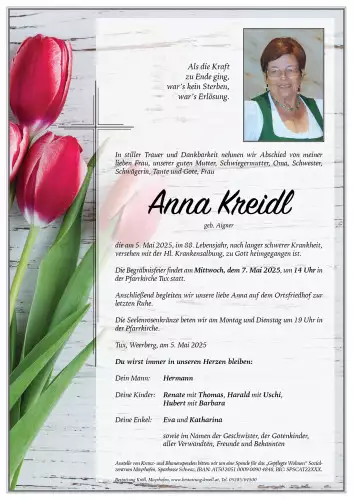 Als die Kraft
zu Ende ging,
war's kein Sterben,
war's Erlösung.
In stiller Trauer und Dankbarkeit nehmen wir Abschied von meiner
lieben Frau, unserer guten Mutter, Schwiegermutter, Oma, Schwester,
Schwägerin, Tante und Gote, Frau
Anna Kreidl
geb. Aigner
die am 5. Mai 2025, im 88. Lebensjahr, nach langer schwerer Krankheit,
versehen mit der Hl. Krankensalbung, zu Gott heimgegangen ist.
Die Begräbnisfeier findet am Mittwoch, dem 7. Mai 2025, um 14 Uhr in
der Pfarrkirche Tux statt.
Anschließend begleiten wir unsere liebe Anna auf dem Ortsfriedhof zur
letzten Ruhe.
Die Seelenrosenkränze beten wir am Montag und Dienstag um 19 Uhr in
der Pfarrkirche.
Tux, Weerberg, am 5. Mai 2025
Du wirst immer in unseren Herzen bleiben:
Dein Mann: Hermann
Deine Kinder: Renate mit Thomas, Harald mit Uschi,
Hubert mit Barbara
Deine Enkel: Eva und Katharina
sowie im Namen der Geschwister, der Gotenkinder,
aller Verwandten, Freunde und Bekannten
Anstelle von Kranz- und Blumenspenden bitten wir um eine Spende für das „Gepflegte Wohnen“ Sozial-
zentrum Mayrhofen, Sparkasse Schwaz,